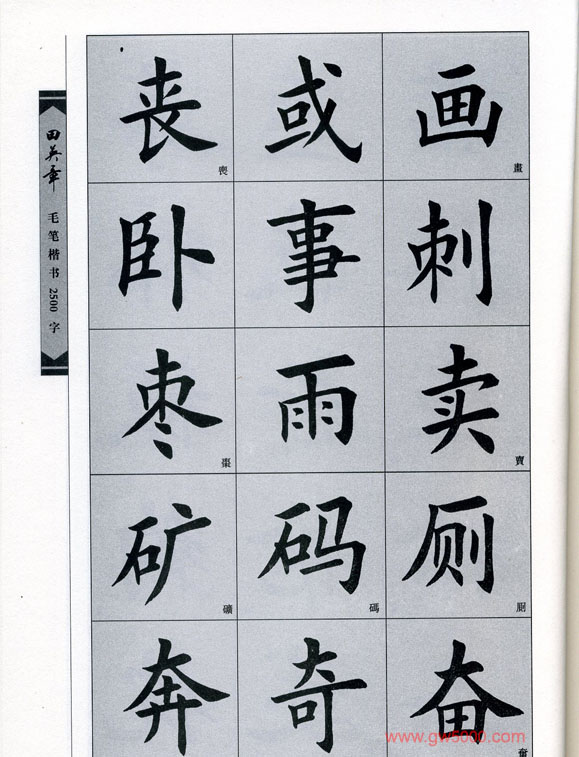 田英章
毛笔楷书2500字
丧 喪 或 画 畫
卧 事 刺
枣 棗 雨 卖 賣
矿 礦 码 碼 厕 厠
奔 奇 奋 奮
www.gw5000.com